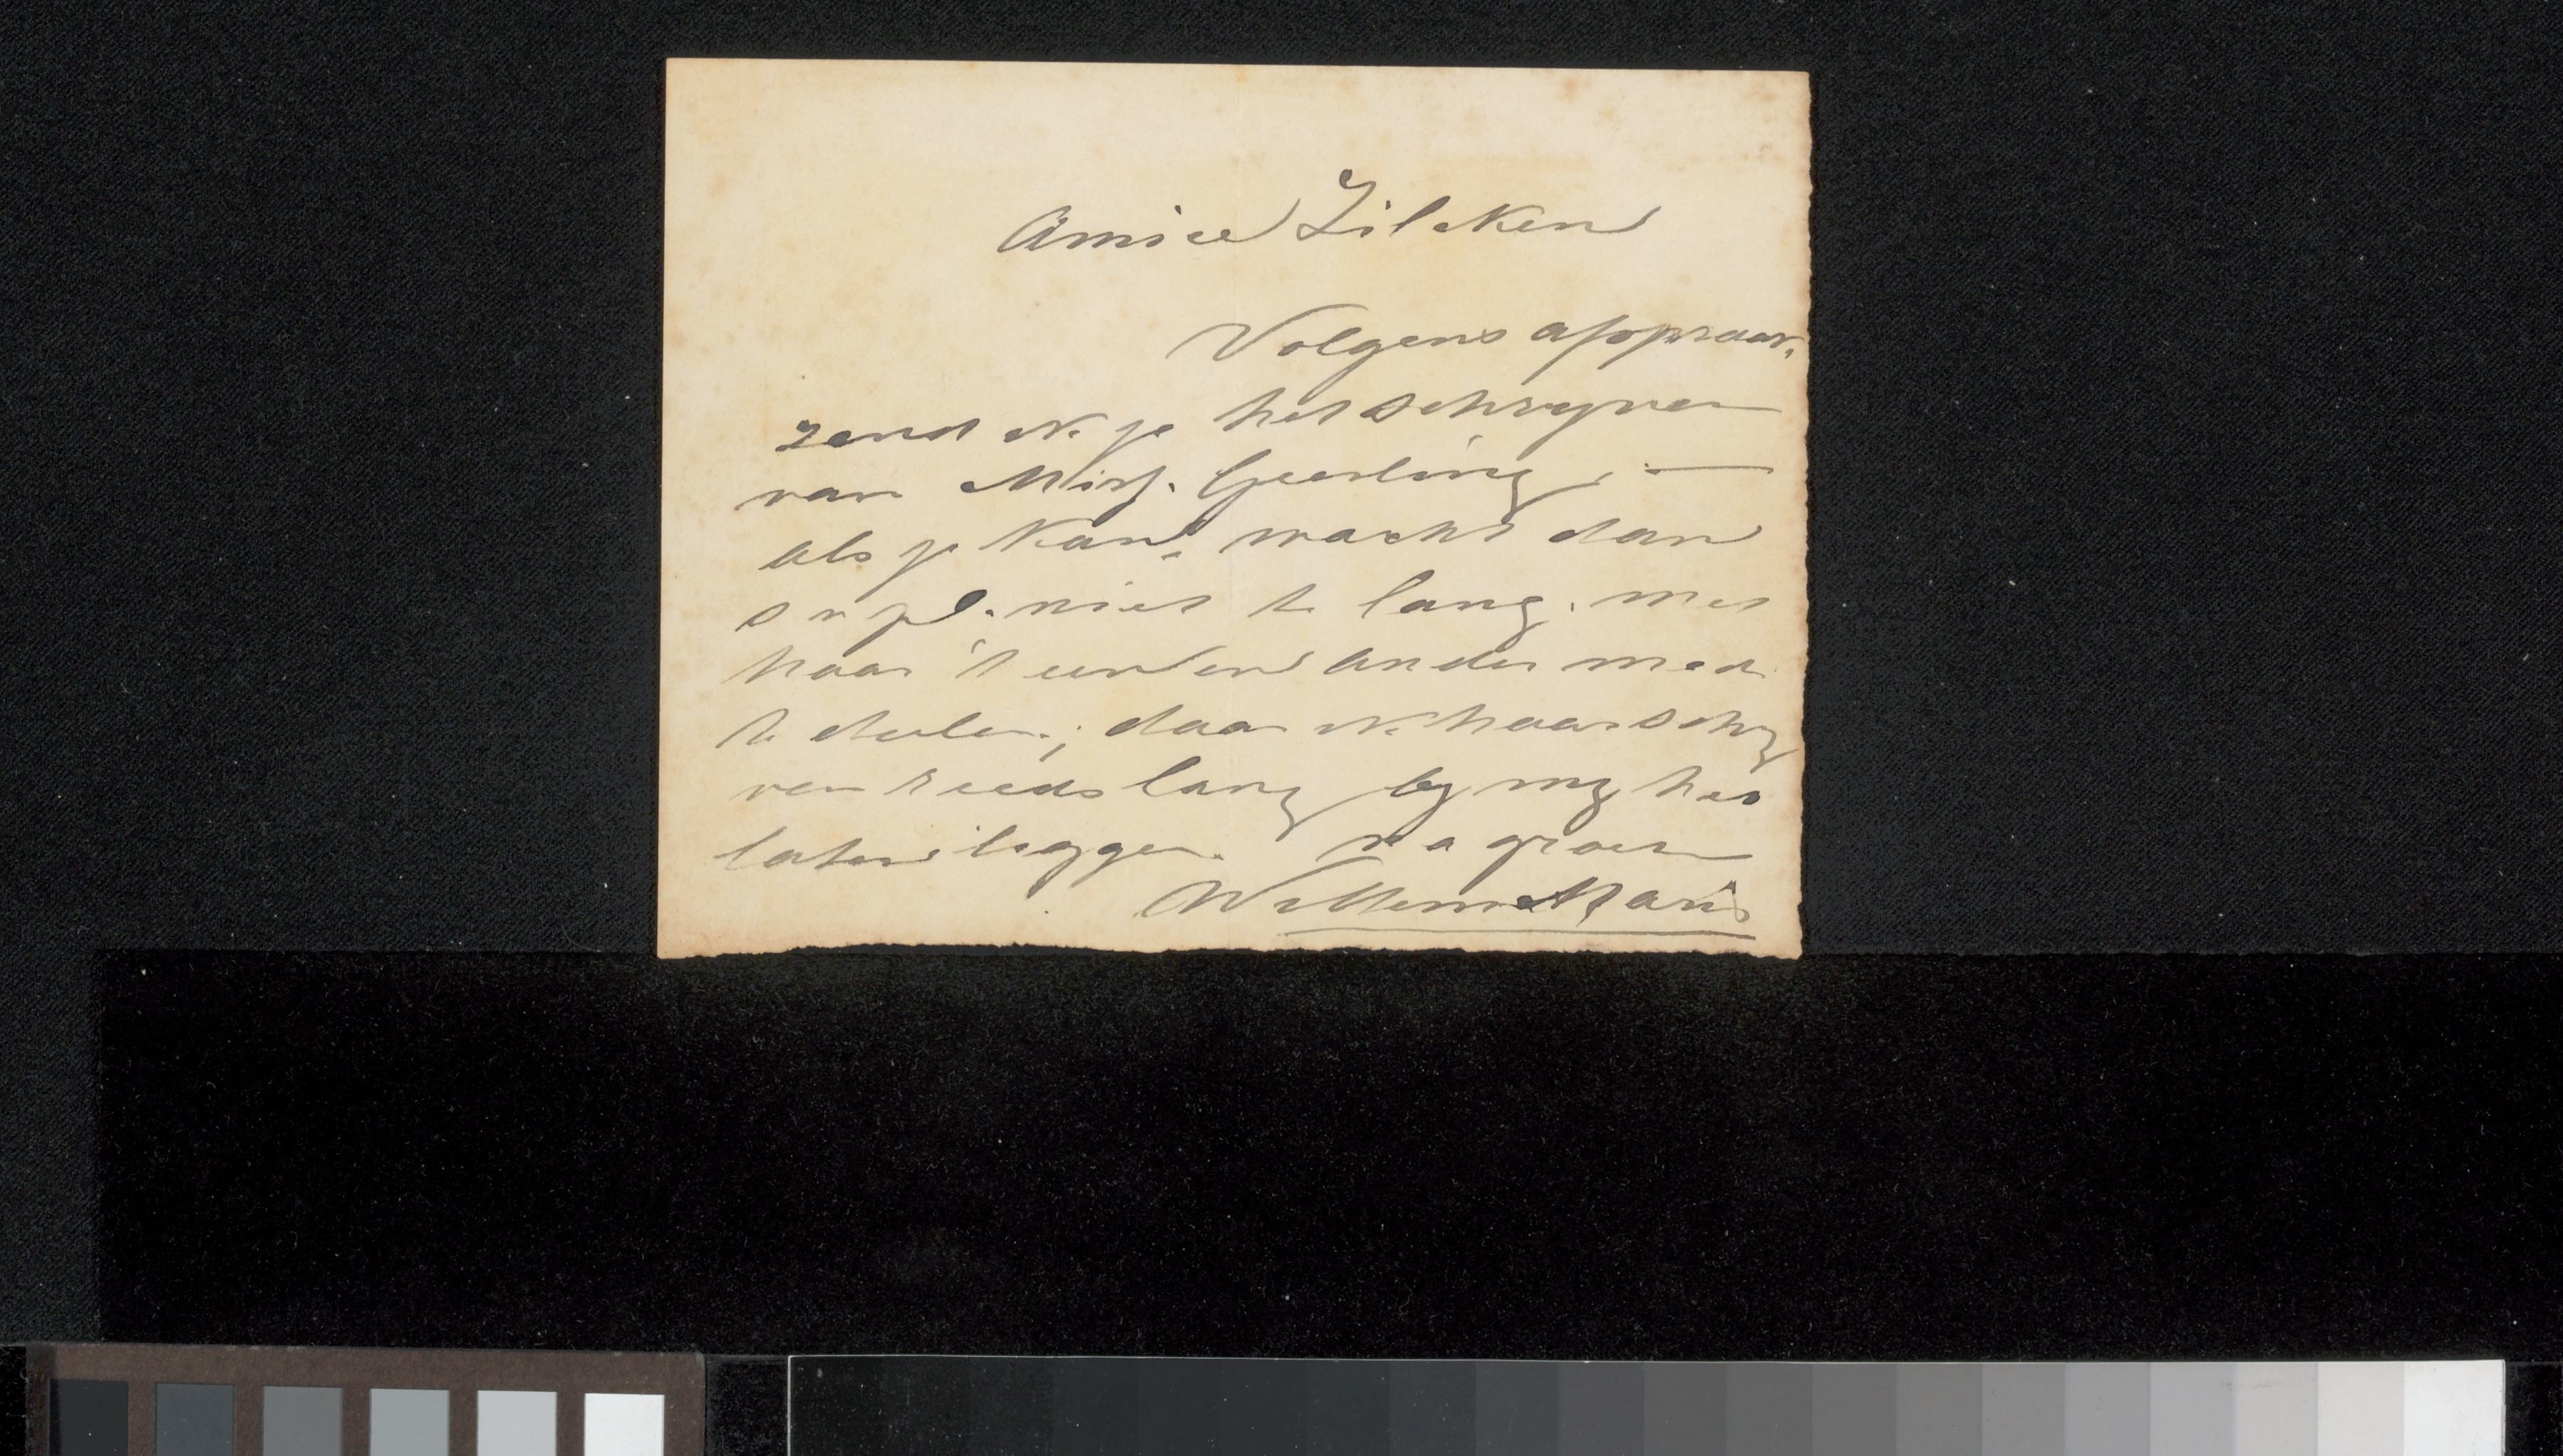 Amice Zilcken
Volgens afspraak
zend ik je het schryven
van Miss. Geerling, —
als je kan, wacht dan
s v pl. niet te lang. met
haar 't een en ander mee
te deelen; daar ik haar schry
ven reeds lang by my heb
laten liggen. na groeten
Willem Maris